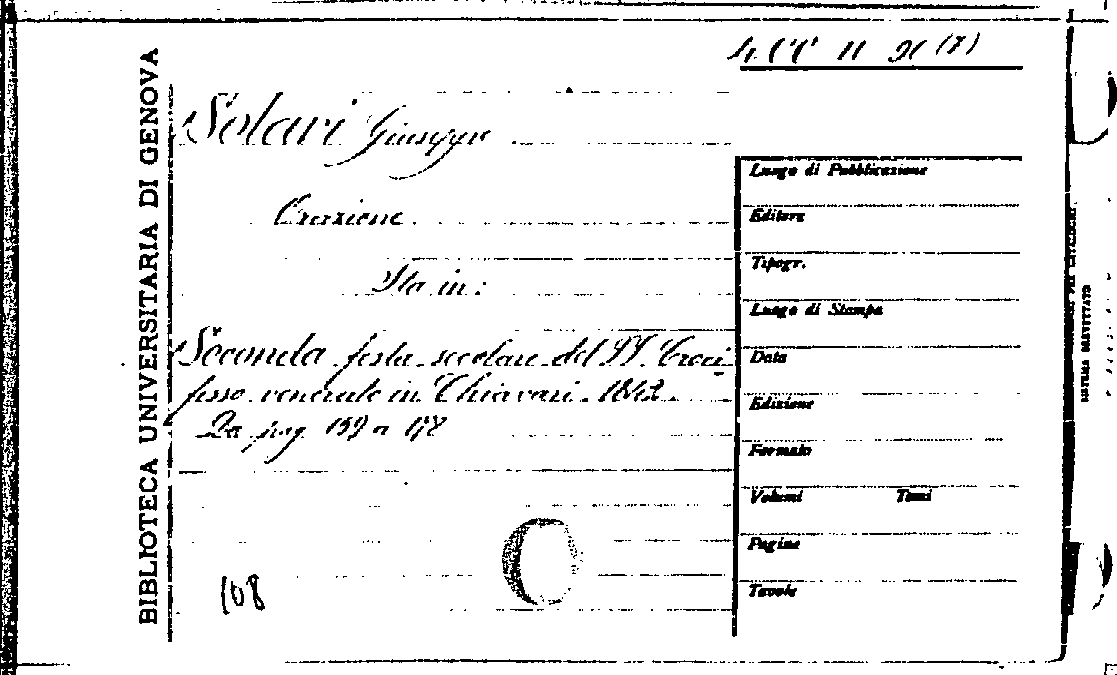 4. CC II 21 (7)
BIBLIOTECA UNIVERSITARIA DI GENOVA
Solari Giuseppe
Orazione
Sta in:
Seconda festa secolare del SS. Croci
fisso venerato in Chiavari. 1842.
Da pag 159 a 178
108
Luogo di Pubblicazione
Editore
Tipogr.
Luogo di Stampa
Data
Edizione
Formato
Volumi Tomi
Pagine
Tavole